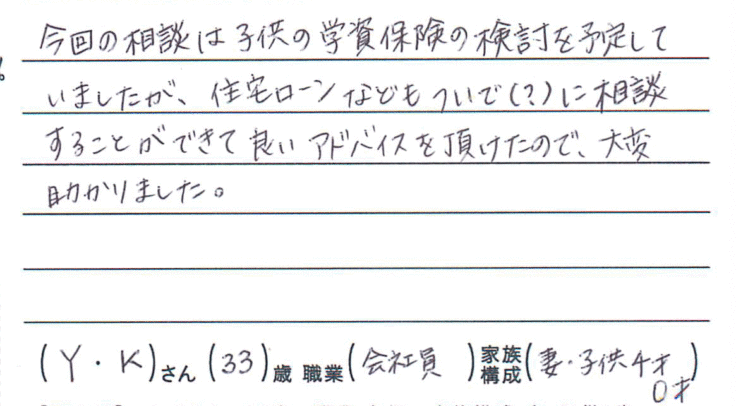 今回の相談は子供の学資保険の検討を予定して
いましたが、住宅ローンなどもついで(?)に相談
することができて良いアドバイスを頂けたので、大変
助かりました。
(Y・K)さん (33)歳 職業(会社員 )家族構成(妻・子供4才
0才)